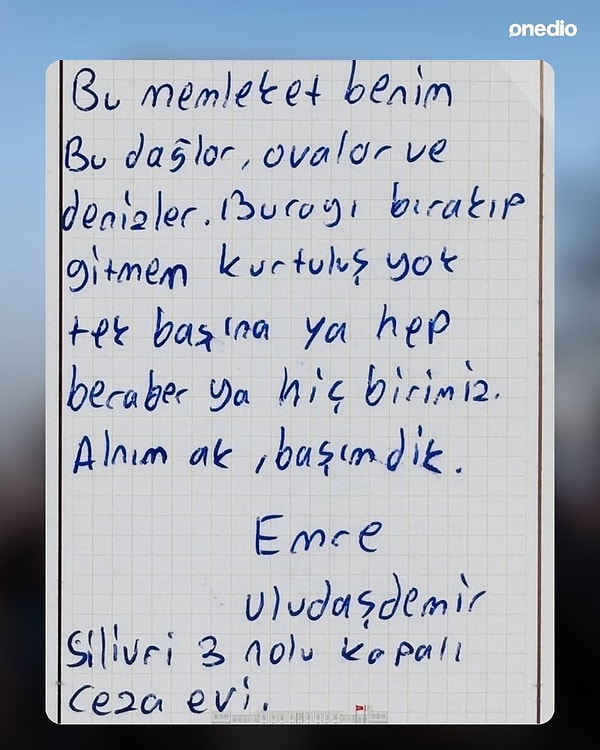 onedio
Bu memleket benim
Bu dağlar, ovalar ve
denizler. Burayı bırakıp
gitmem kurtuluş yok
tek başına ya hep
beraber ya hiç birimiz.
Alnım ak, başım dik.
Emre
Uludaşdemir
Silivri 3 nolu kapalı
Ceza evi.